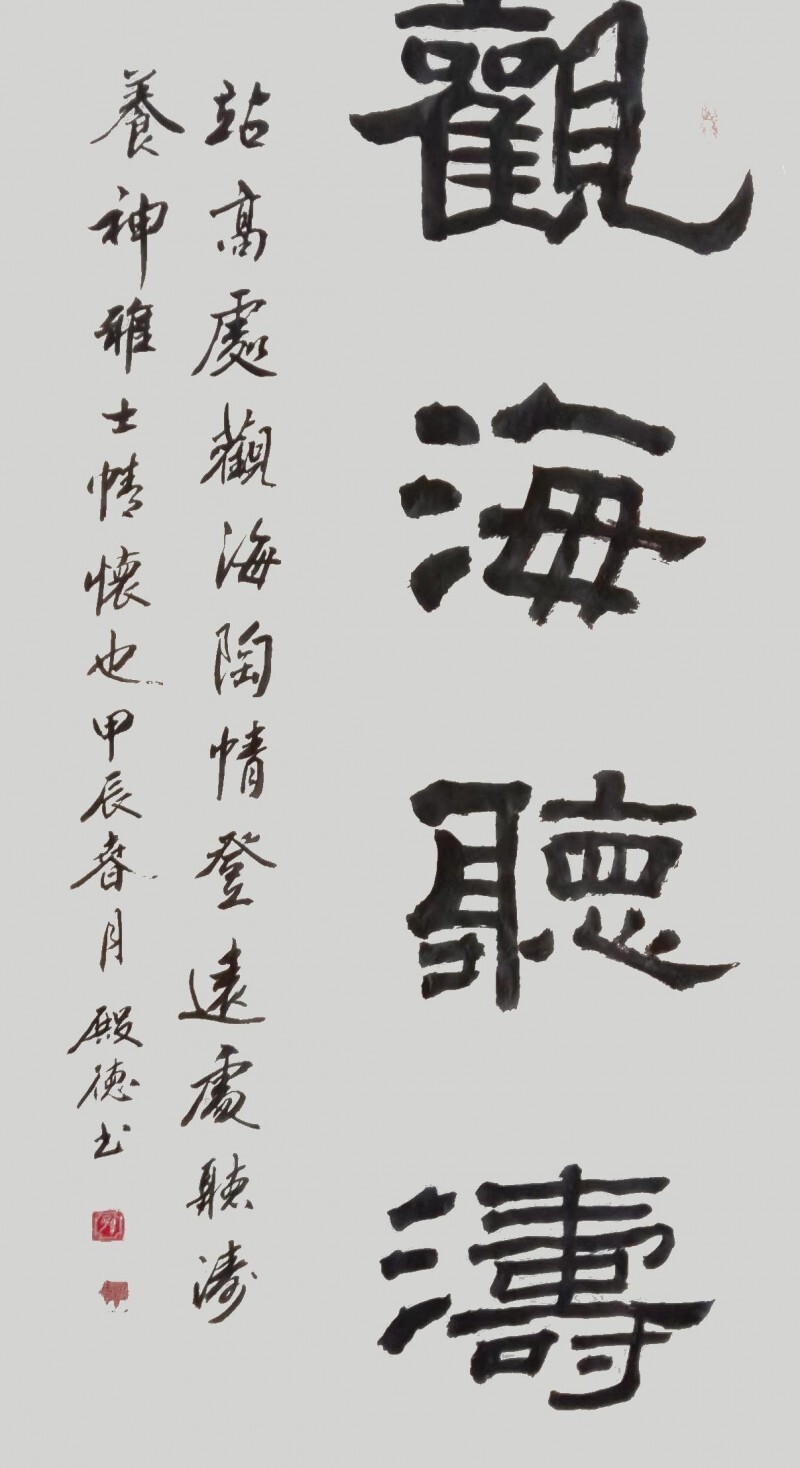 觀海聽濤
站高處觀海陶情登遠處聽濤
養神雅士情懷也甲辰春月殿德书